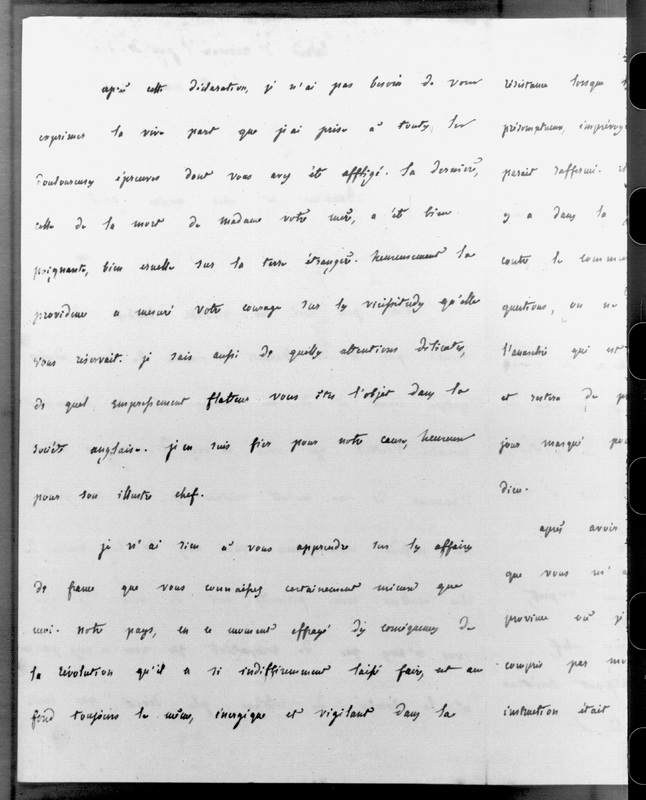 après cette déclaration, je n'ai pas besoin de vous
exprimer la vive part que j'ai prise à touty les
douloureusy épreuves dont vous avez été affligé. la dernière,
celle de la mort de madame votre mère, a été bien
poignante, bien cruelle sur la terre étrangère. heureusement la
providence a mesuré votre courage sur ly vicissitudy qu'elle
vous réservait. je sais aussi de quelly attentions délicates,
de quel empressement flatteur vous êtes l'objet dans la
société anglaise. j'en suis fier pour notre cause, heureux
pour son illustre chef.
je n'ai rien à vous apprendre sur ly affaires
de france que vous connaissez certainement mieux que
moi. notre pays, en ce moment effrayé dy conséquences de
la révolution qu'il a si indifféremment laissé faire, est au
fond toujours le même, énergique et vigilant dans la
résistance lorsque
présomptueux,
parait raffermi.
y a dans la
contre le
questions, on ne
l'anarchie qui est
et restera de
jour marqué
dieu.
après avoir
que vous m'a
province où j
compris par
instruction était